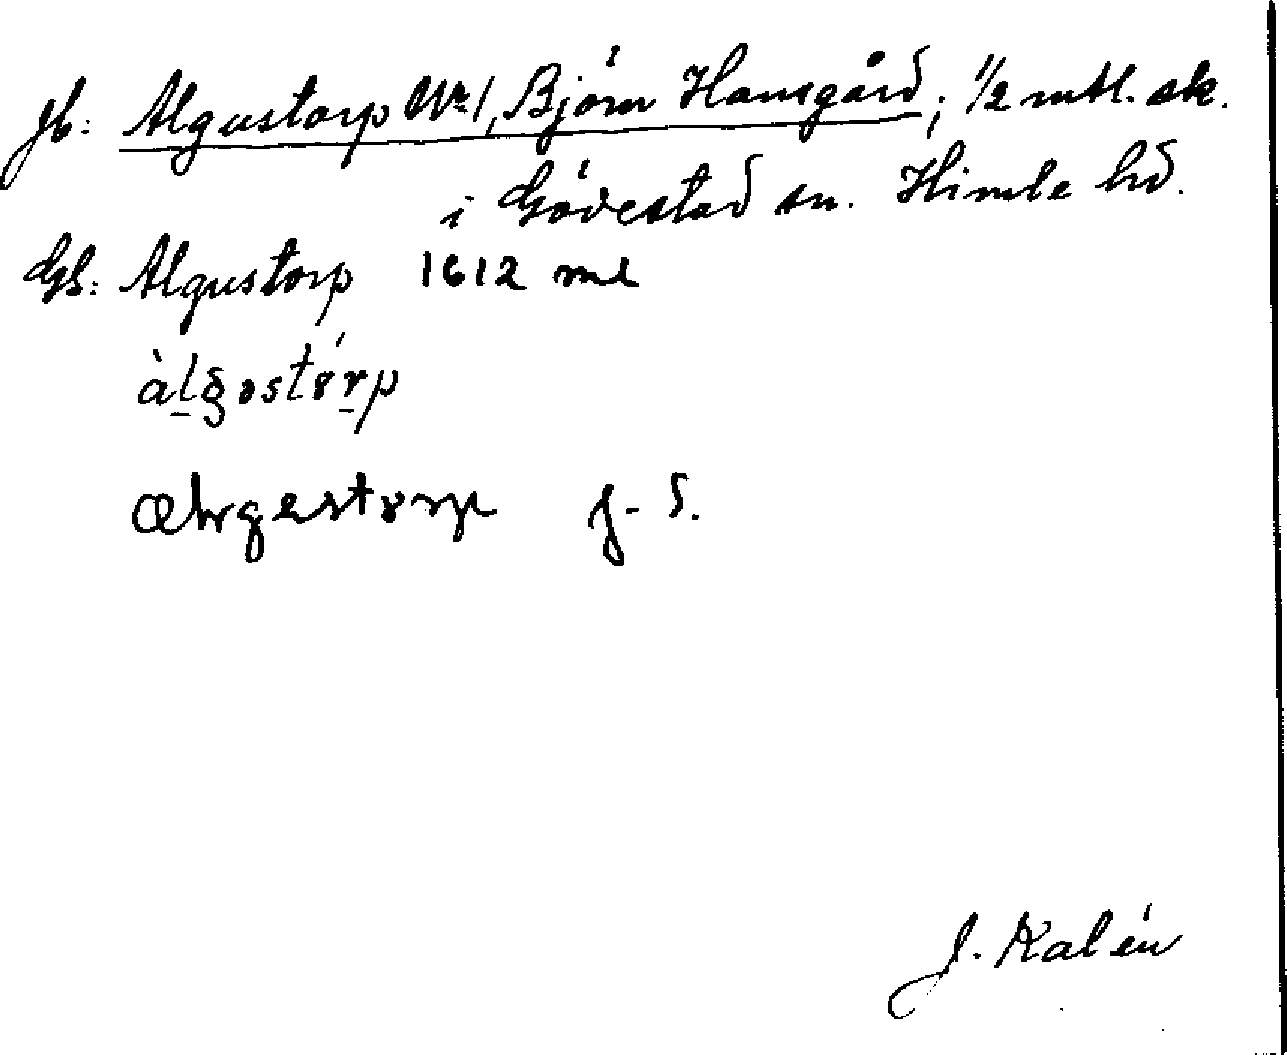 Jb: Algustorp Nr 1, Björn Hansgård; 1/2 mtl. sk.
i Gödestad sn. Himle hd.
Gb: Algustorp 1612 ml
J. Kalén